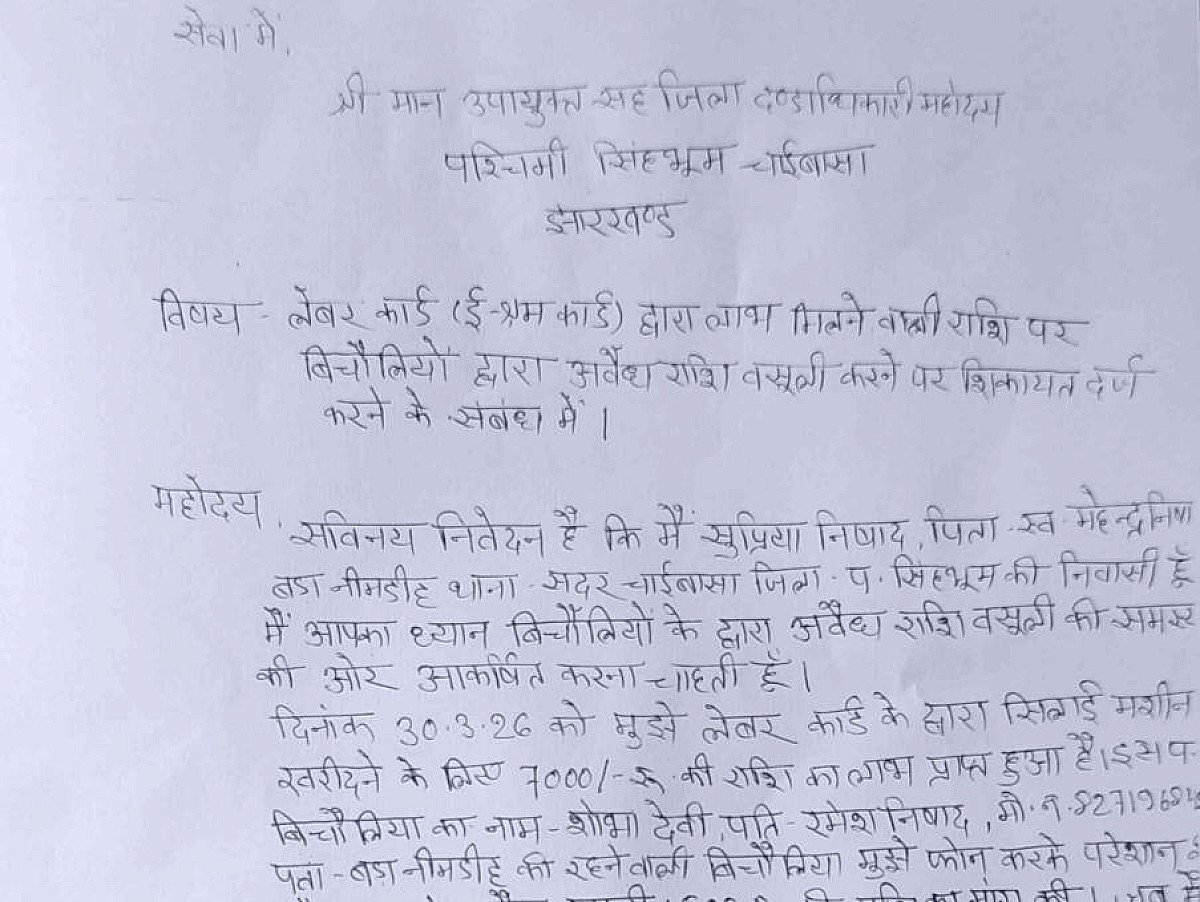 सेवा में,
श्री मान उपायुक्त सह जिला दण्डाधिकारी महोदय
पश्चिमी सिंहभूम चाईबासा
झारखण्ड
विषय - लेबर कार्ड (ई-श्रम कार्ड) द्वारा लाभ मिलने वाली राशि पर
बिचौलियों द्वारा अवैध राशि वसूली करने पर शिकायत दर्ज
करने के संबंध में।
महोदय,
सविनय निवेदन है कि मैं सुप्रिया निषाद, पिता स्व मेहन्द्र निषा
बड़ा नीमडीह थाना सदर चाईबासा जिला प. सिंहभूम की निवासी हूँ
मैं आपका ध्यान बिचौलियों के द्वारा अवैध राशि वसूली की समस्
की ओर आकर्षित करना चाहती हूँ।
दिनांक 30.3.26 को मुझे लेबर कार्ड के द्वारा सिलाई मशीन
खरीदने के लिए 7000/- रू. की राशि का लाभ प्राप्त हुआ है। इस प
बिचौलिया का नाम - शोभा देवी, पति - रमेश निषाद, मो. न. 8271968
पता - बड़ा नीमडीह की रहने वाली बिचौलिया मुझे फोन करके परेशान